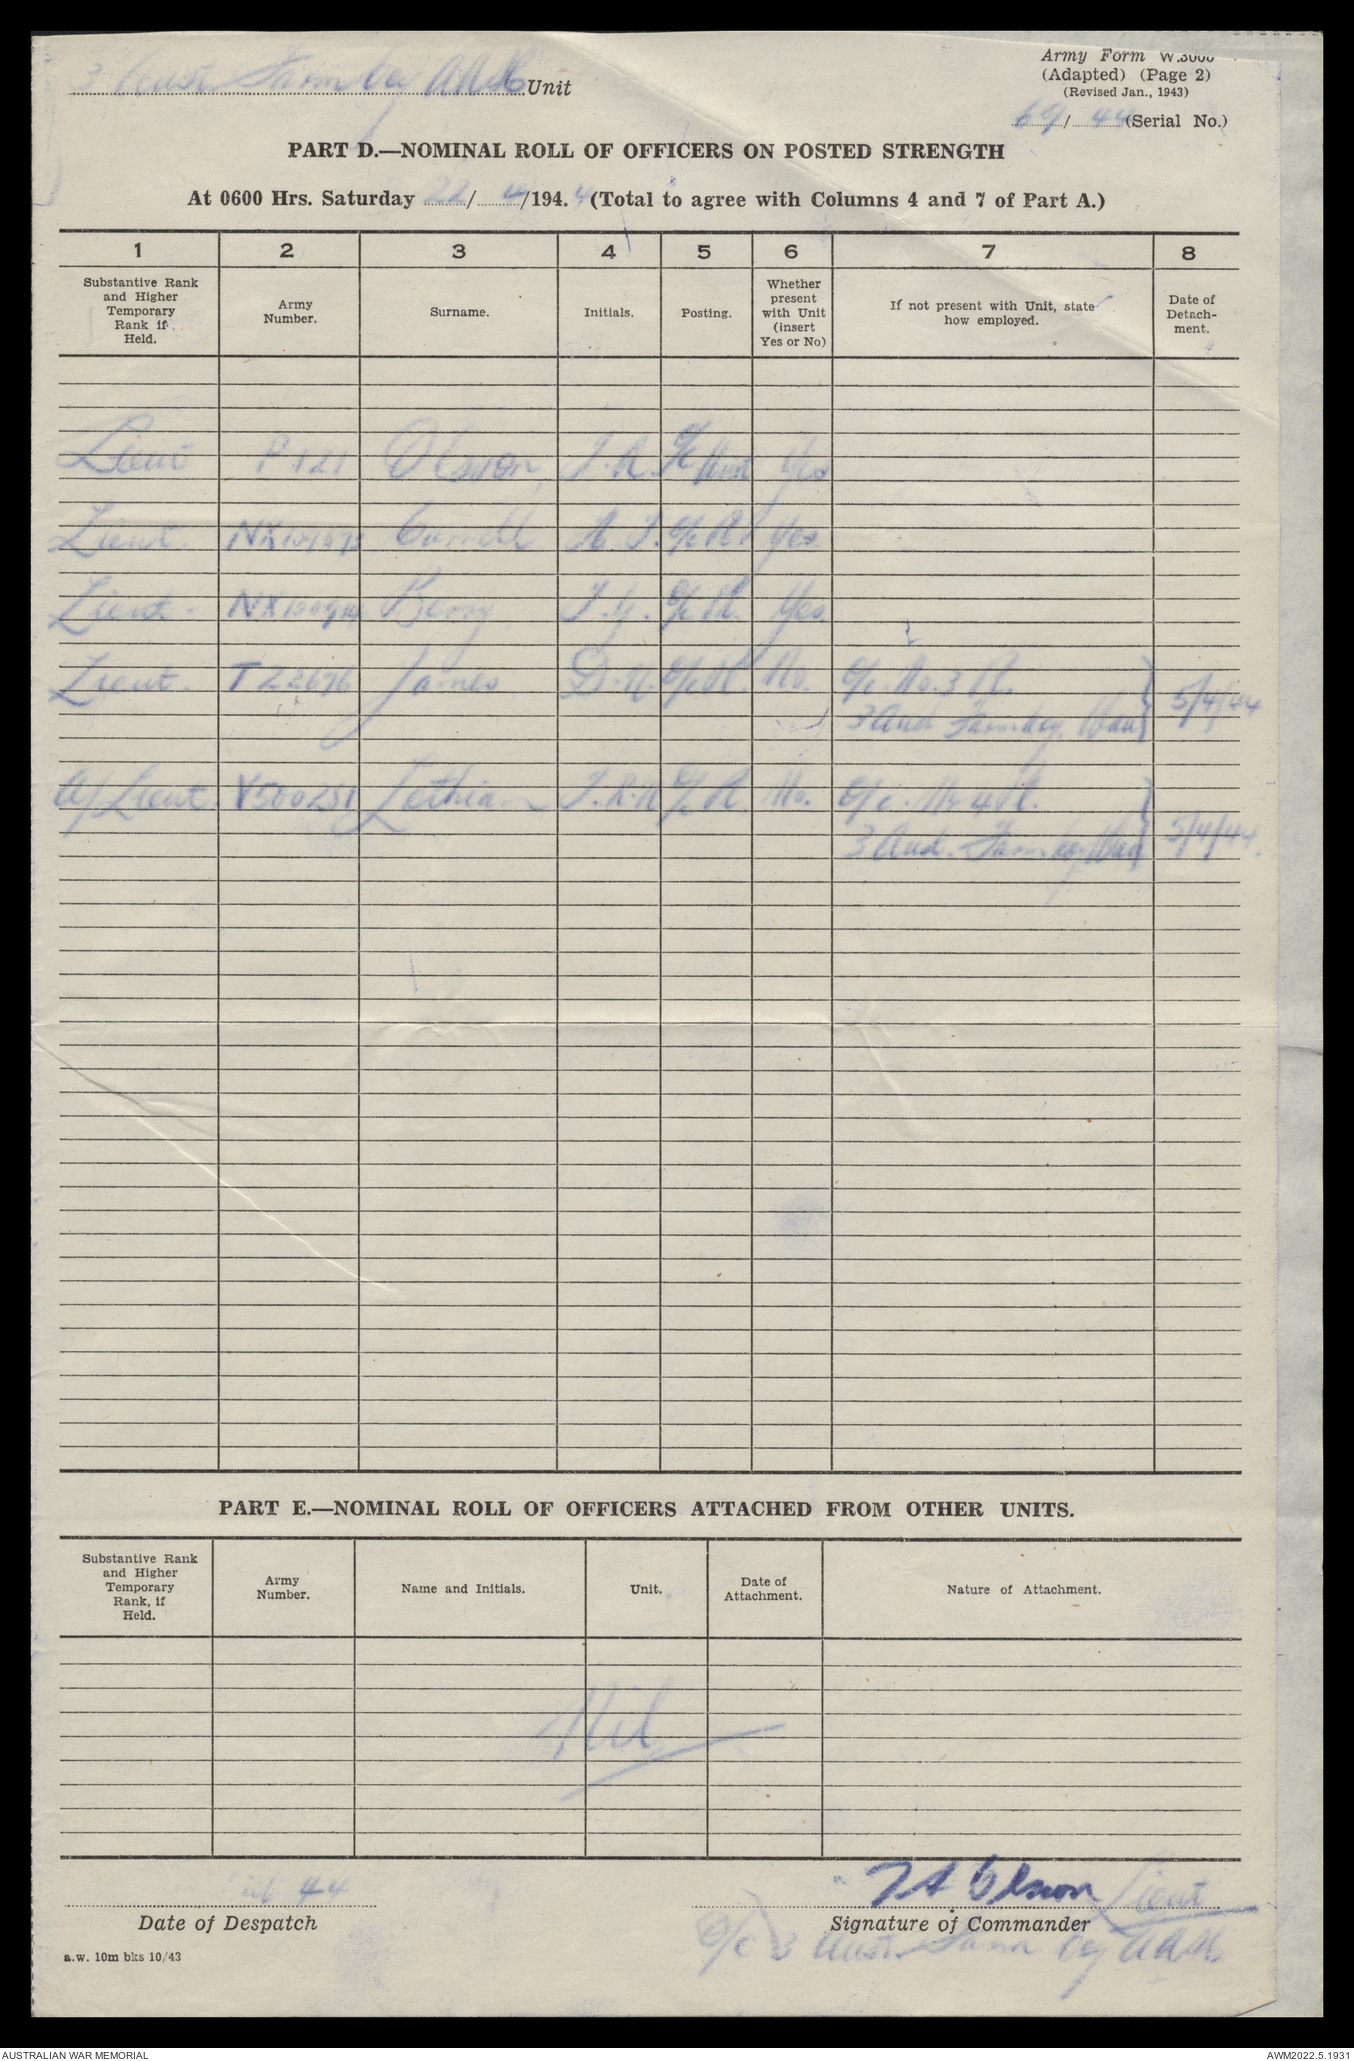 3 Aust Farm Coy AASC Unit
Army Form W.3008
(Adapted) (Page 2)
(Revised Jan., 1943)
69/44 (Serial No.)
PART D.—NOMINAL ROLL OF OFFICERS ON POSTED STRENGTH
At 0600 Hrs. Saturday 22/4/1944 (Total to agree with Columns 4 and 7 of Part A.)
1 2 3 4 5 6 7 8
Substantive Rank and Higher Temporary Rank if Held.
Army Number.
Surname.
Initials.
Posting.
Whether present with Unit (insert Yes or No)
If not present with Unit, state how employed.
Date of Detachment.
Lieut P121 Olsson Yes
Lieut. Yes
Lieut. Yes
Lieut. T22676 James No. O/c. No. 3 Pl.
3 Aust Farm Coy, 5/4/44
A/Lieut. V500251 No. O/c. No 4 Pl.
3 Aust. Farm Coy 5/4/44.
PART E.—NOMINAL ROLL OF OFFICERS ATTACHED FROM OTHER UNITS.
Substantive Rank and Higher Temporary Rank, if Held.
Army Number.
Name and Initials.
Unit.
Date of Attachment.
Nature of Attachment.
Nil
44
Olsson Lieut
Date of Despatch
Signature of Commander
O/c 3 Aust Farm Coy AASC
a.w. 10m bks 10/43
AUSTRALIAN WAR MEMORIAL
AWM2022.5.1931